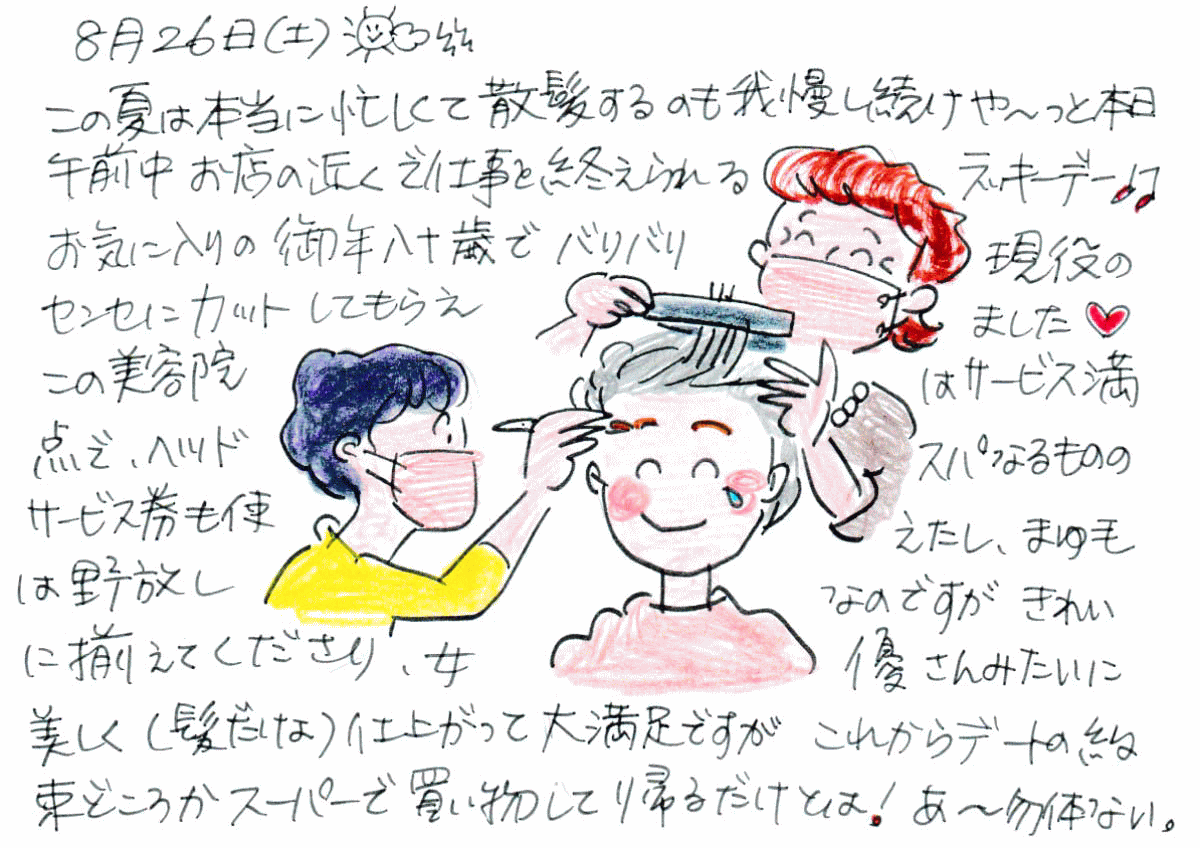 8月26日(土)
この夏は本当に忙しくて散髪するのも我慢し続けや～っと本日
午前中お店の近くで仕事を終えられるラッキーデー♫
お気に入りの御年八十歳でバリバリ現役の
センセにカットしてもらえました
この美容院はサービス満
点で、ヘッドスパなるものの
サービス券も使えたし、まゆも
は野放しなのですがきれい
に揃えてくださり、女優さんみたいに
美しく(髪だけな)仕上がって大満足ですがこれからデートの約
束どころかスーパーで買い物して帰るだけとは!あ～勿体ない。